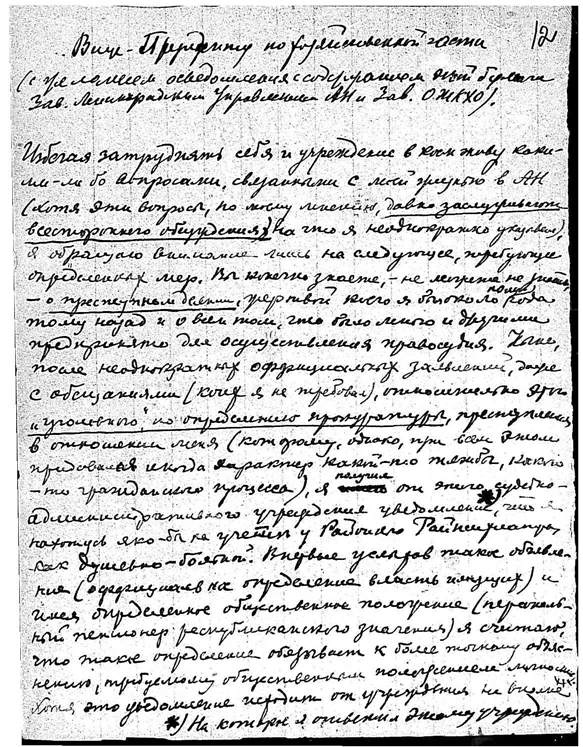 12
Вице-Президенту по хозяйственной части
(с желанием осведомления с содержанием этой бумаги
Зав. Ленинградским Управлением АН и Зав. ОЖКХО).
Избегая затруднять себя и учреждение в коем живу каки-
ми-либо вопросами, связанными с моей жизнью в АН
(хотя эти вопросы, по моему мнению, давно заслуживают
всестороннего обсуждения) на что я неоднократно указывал),
я обращаю внимание лишь на следующее, требующее
определенных мер. Вы конечно знаете, - не можете не знать,
- о преступном деянии, жертвой коего я был около полугода
тому назад и о всем том, что было мною и другими
предпринято для осуществления правосудия. Ныне,
после неоднократных официальных заявлений, даже
с обещаниями (коих я не требовал), относительно этого
"уголовного", по определению прокуратуры, преступления
в отношении меня (которому, однако, при всем этом
придавался иногда характер какой-то тяжбы, какого
-то гражданского процесса), я получил от этого судебно-
административного учреждения уведомление*), что я
нахожусь яко-бы на учете у Районного Райпсихиатра,
как душевно-больной. Впервые услыхав такое объявле-
ние (официальное определение власть имущих) и
имея определенное общественное положение (персональ-
ный пенсионер республиканского значения) я считаю
что такое определение обязывает к более точному объяс-
нению, требуемому общественным положением личности.
Хотя это уведомление исходит от учреждения не вполне
*) На которое я ответил этому учреждению